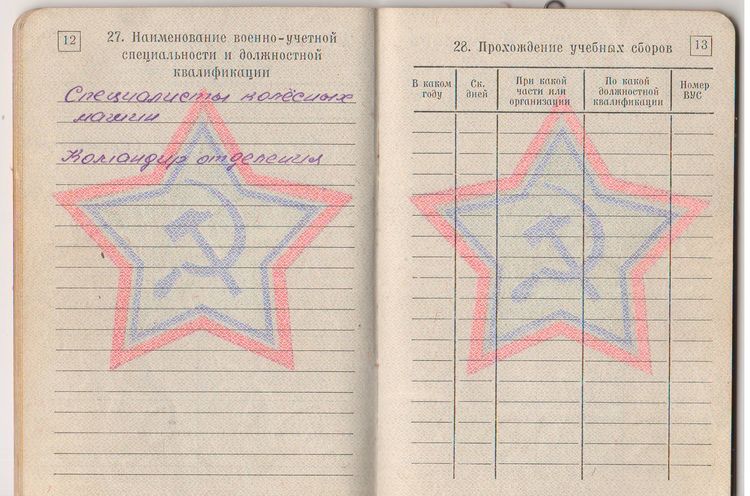 12
27. Наименование военно-учетной
специальности и должностной
квалификации
Специалисты колёсных
машин
Командир отделения
28. Прохождение учебных сборов
13
В каком
году
Ск.
дней
При какой
части или
организации
По какой
должностной
квалификации
Номер
ВУС